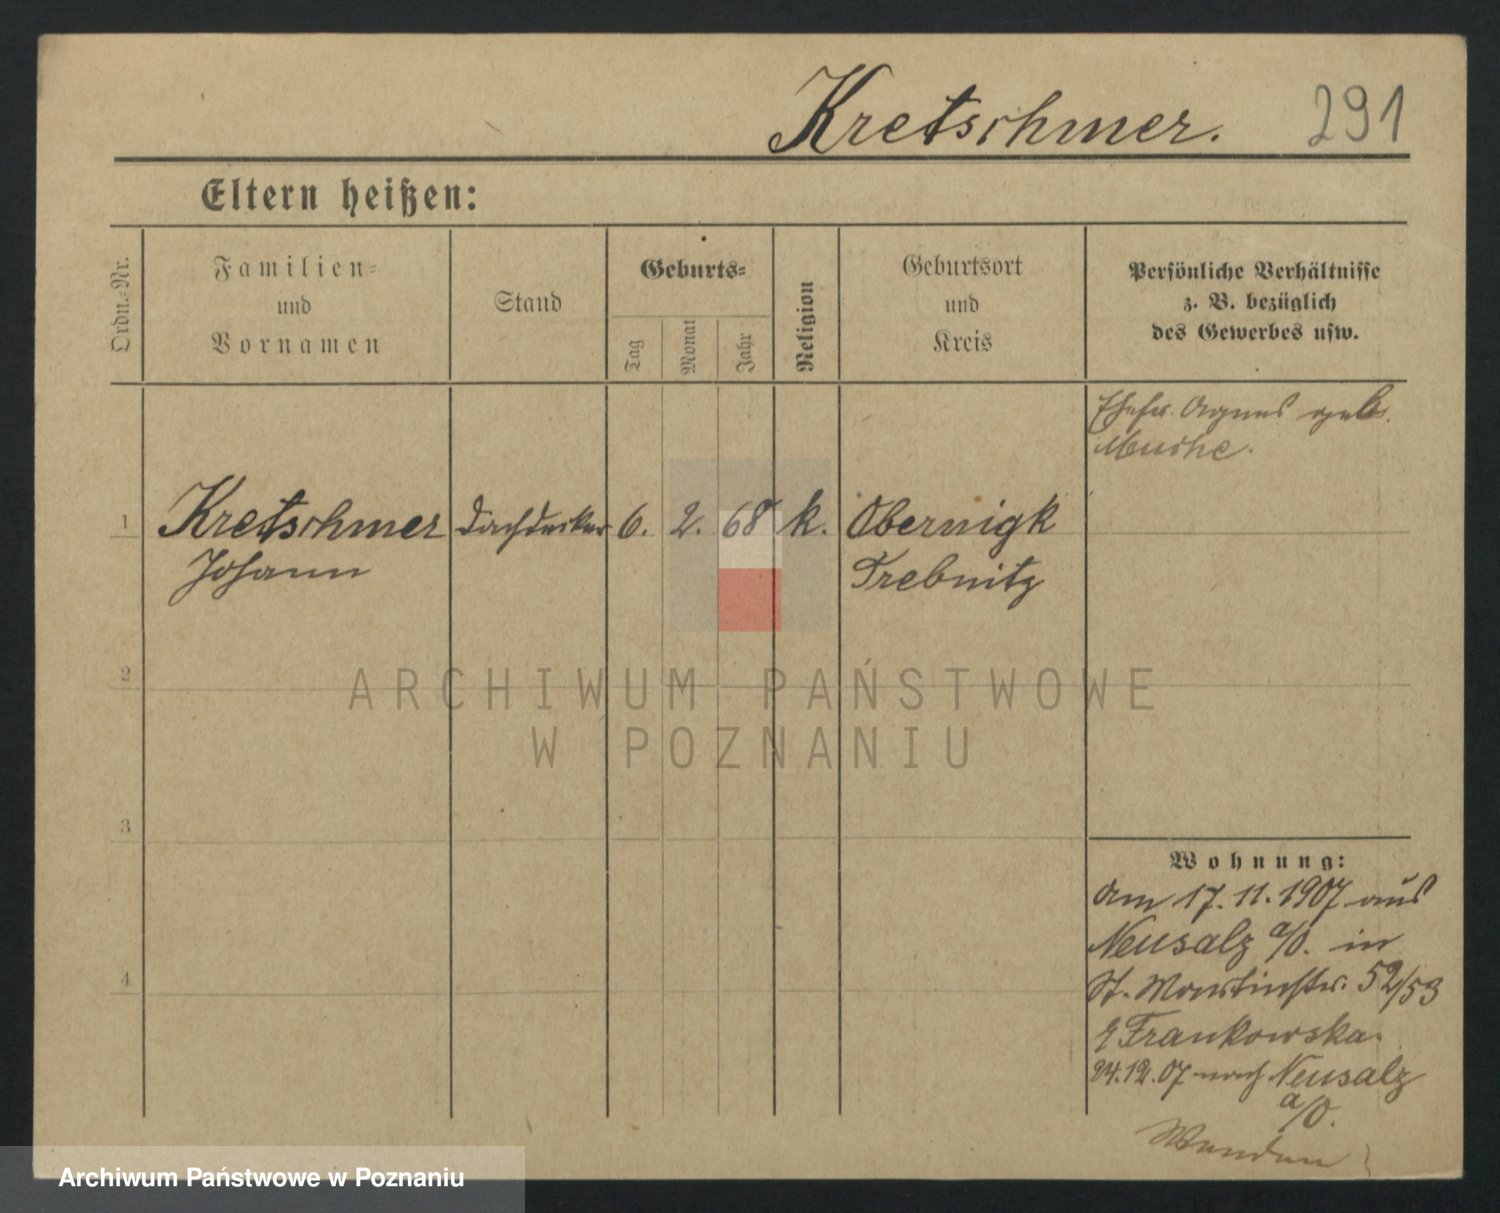 Kretschmer. 291
Eltern heißen:
Ordn.-Nr.
Familien-
und
Vornamen
Stand
Geburts-
Tag
Monat
Jahr
Religion
Geburtsort
und
Kreis
Persönliche Verhältnisse
z. B. bezüglich
des Gewerbes usw.
Ehefr. Agnes geb.
1 Kretschmer Dachdecker 6. 2. 68 k. Obernigk
Johann Trebnitz
2
3
4
Wohnung:
Am 17.11.1907 aus
Neusalz a/O. in
St. Martinstr. 52/53
Frankowska.
24.12.07 nach Neusalz
a/O.
Wenden!
ARCHIWUM PAŃSTWOWE
W POZNANIU
Archiwum Państwowe w Poznaniu